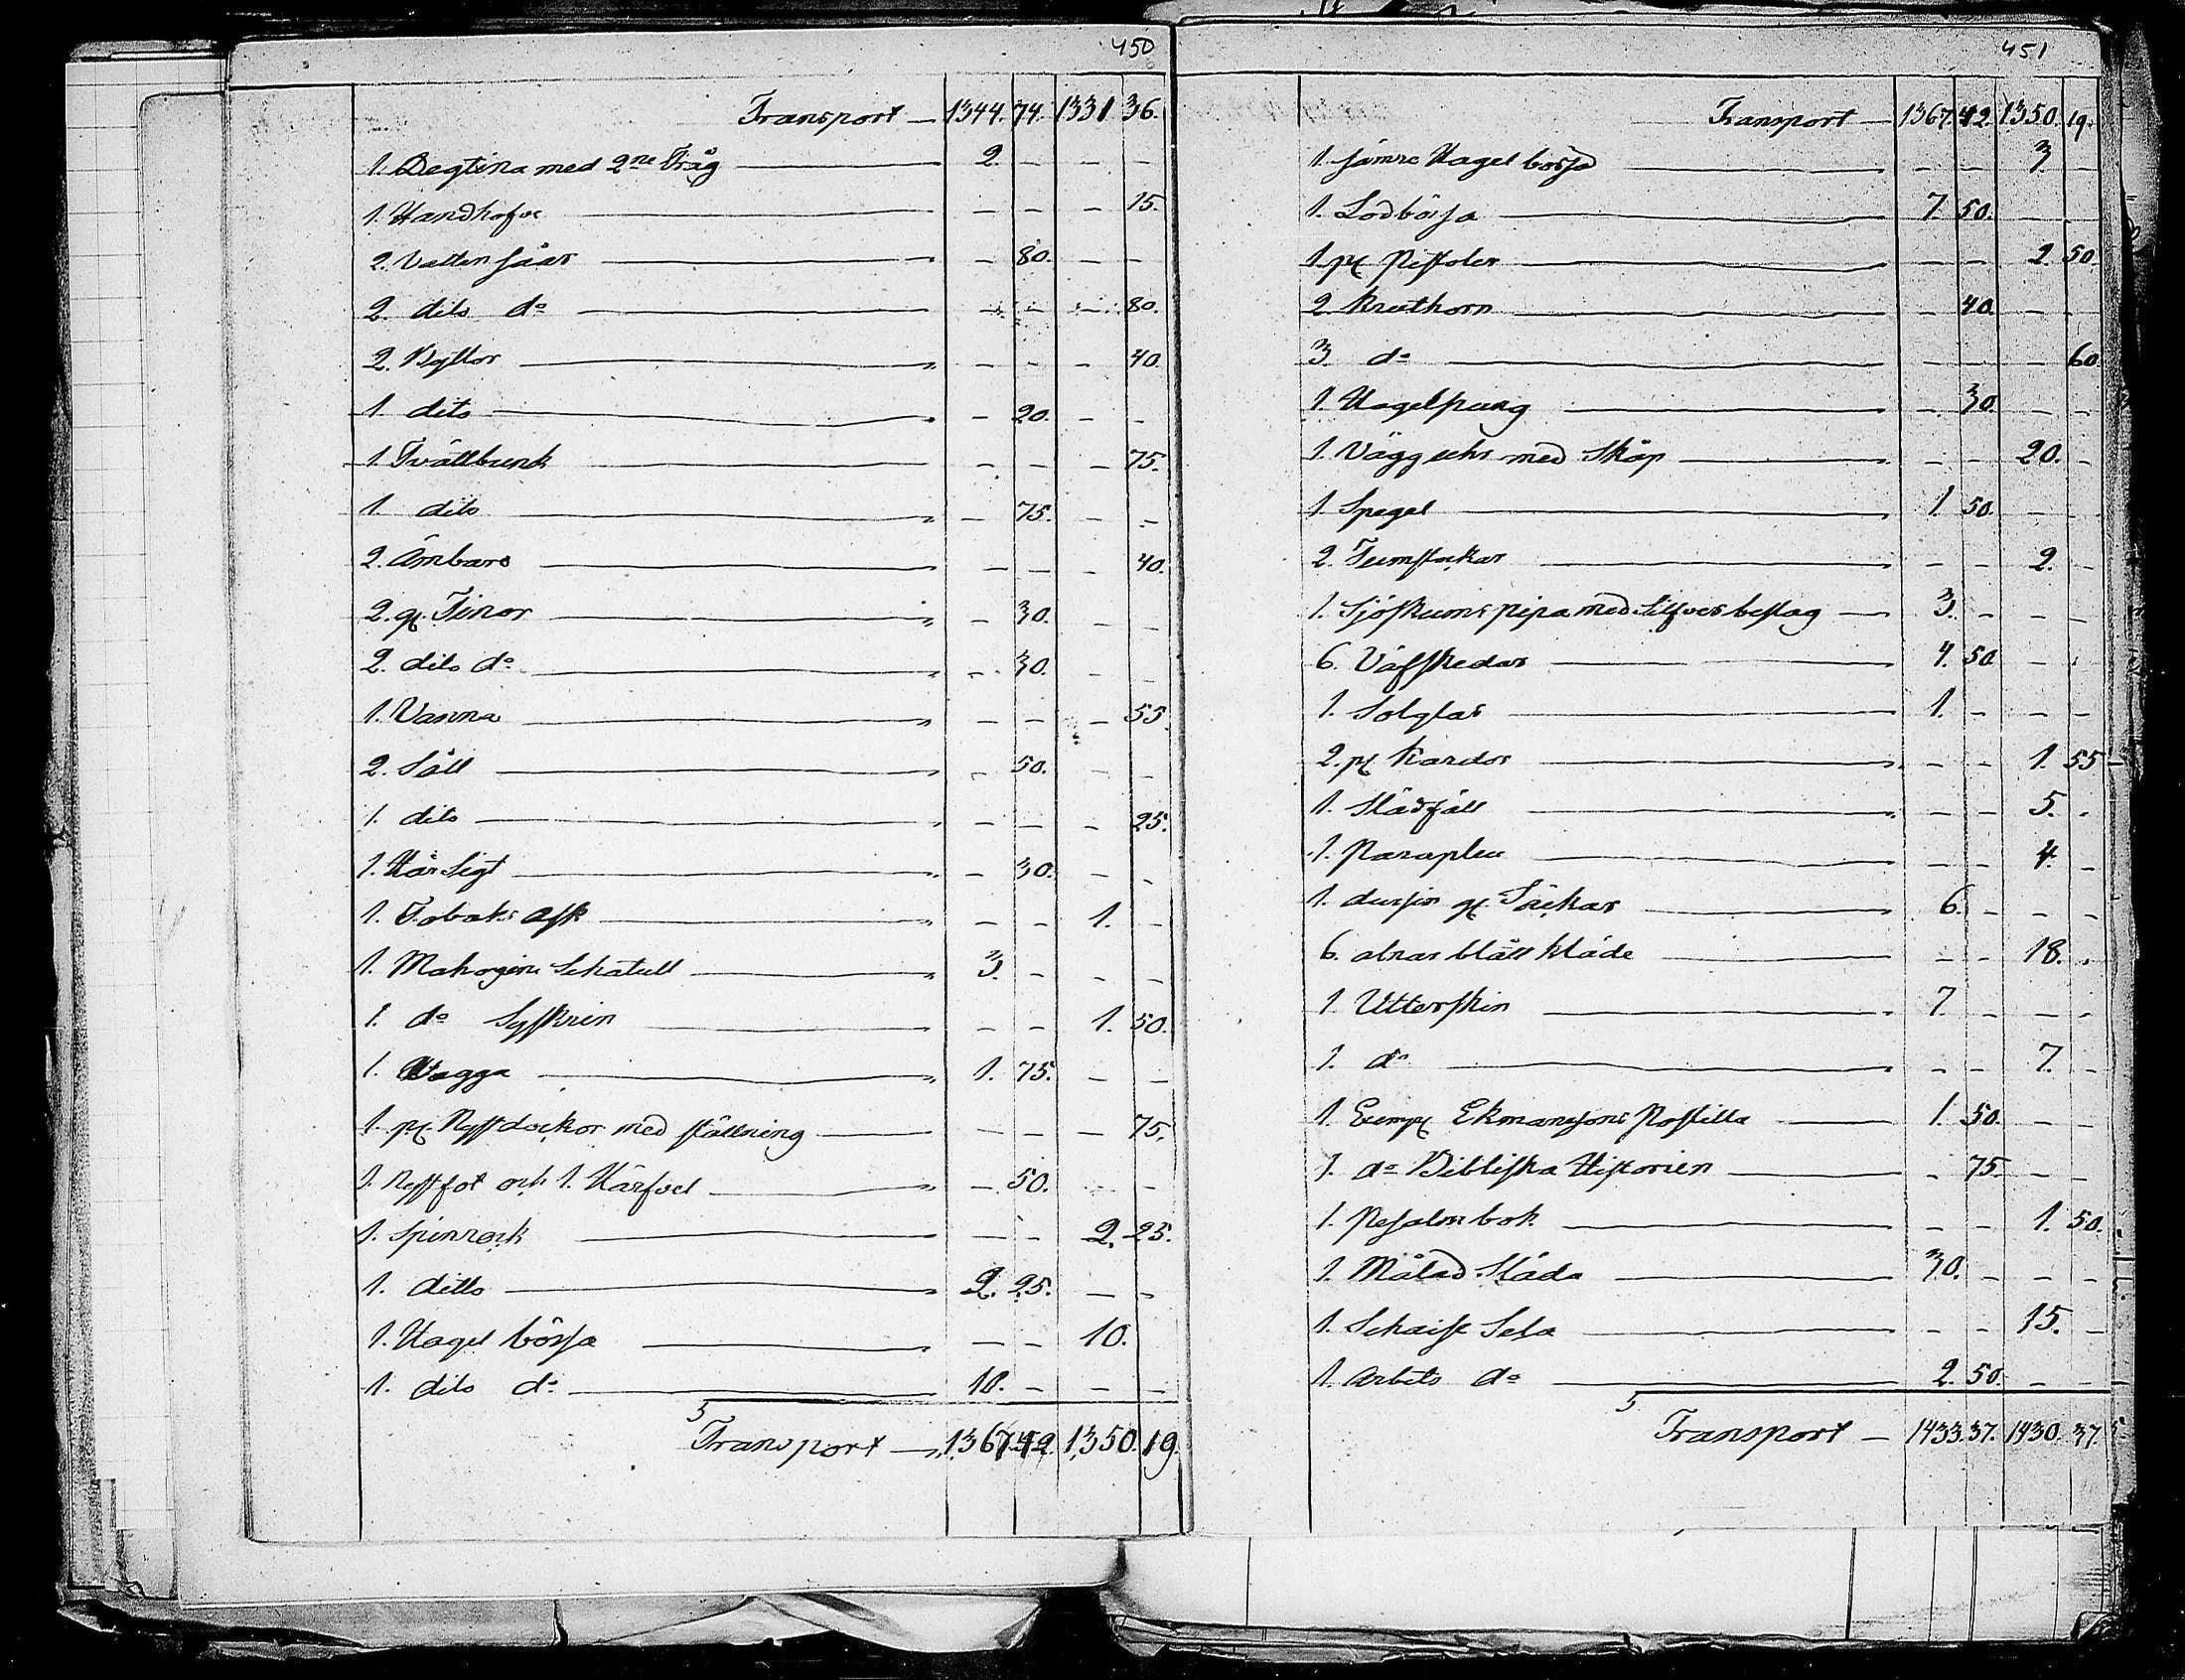 450
Transport — 1344. 74. 1331 36.
1. Degtina med 2ne Tråg — 2. — — —
1. Handhofve — — — — 15.
2. Vatten såar — — 80. — —
2. dito do — — — — 80.
2. Byttor — — — — 40.
1. dito — — 20. — —
1. Tvättbunk — — — — 75.
1. dito — — 75. — —
2. Ämbare — — — — 40.
2. gl. Tinor — — 30. — —
2. dito do — — 30. — —
1. Vanna — — — — 55
2. Såll — — 50. — —
1. dito — — — — 25.
1. Hår Sigt — — 30. — —
1. Tobaks ask — — — 1. —
1. Mahogeni Schatull — 3. — — —
1. do Syskrin — — — 1. 50.
1. Vagga — 1. 75. — —
1. pr Nystdockor med ställning — — — — 75.
1. Nystfot och 1. Härfvel — — 50. — —
1. Spinrock — — — 2. 25.
1. ditto — 2. 25. — —
1. Hagel bössa — — — 10.
1. dito do — 10. — — —
Transport — 1367. 42. 1350. 19.
451
Transport — 1367. 42. 1350. 19.
1. sämre Hagel bössa — — — 3 —
1. Lodbössa — 7. 50. — —
1. pr Pistoler — — — 2. 50.
2. Kruthorn — — 40. — —
3. do — — — — 60
1. Hagelpung — — 30. — —
1. Vägguhr med Skåp — — — 20. —
1. Spegel — 1. 50. — —
2. Tumstockar — — — 2. —
1. Sjöskums pipa med Silfver beslag — 3. — — —
6. Väfskedar — 4. 50 — —
1. Solglas — 1. — — —
2. pr Kardor — — — 1. 55
1. Slädfäll — — — 5. —
1. Paraplu — — — 4. —
1. dussin gl. Säckar — 6. — — —
6. alnar blått kläde — — — 18. —
1 Utterskin — 7 — — —
1. do — — — 7. —
1. Exempr Ekmanssons Postilla — 1. 50. — —
1. do Bibliska Historien — — 75. — —
1. Psalm bok — — — 1. 50.
1. Målad Släda — 30. — — —
1. Schaise Sela — — — 15. —
1. Arbets do — 2. 50. — —
Transport — 1433. 37. 1430. 37.